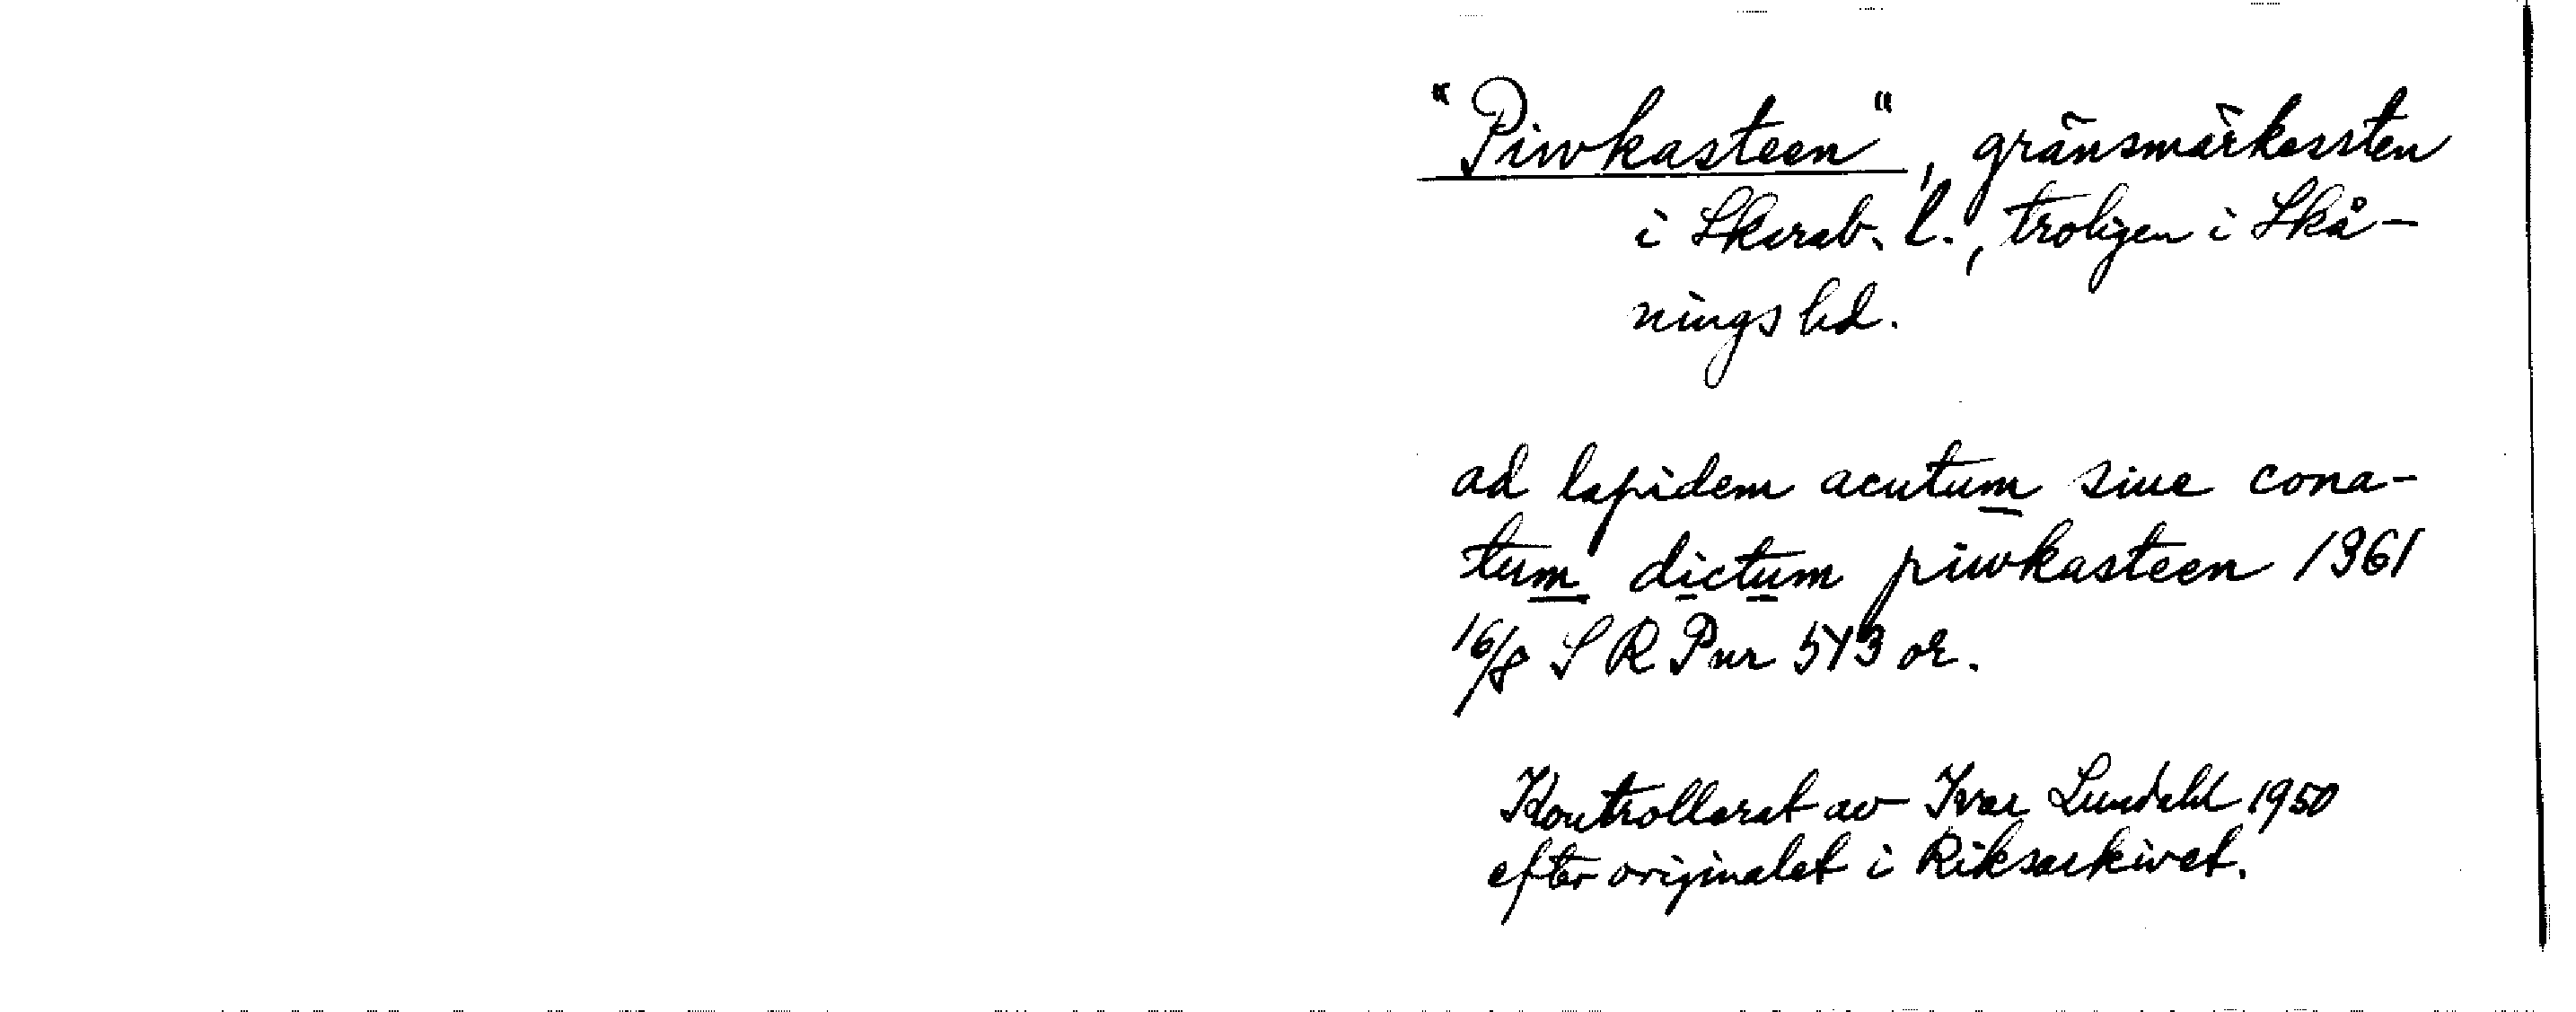 "Piwkasteen", gränsmärkessten
i Skarab. l., troligen i Skå-
nings hd.
ad lapidem acutum siue cona-
tum dictum piwkasteen 1361
16/8 S R Pnr 543 or.
Kontrollerat av Ivar Lundahl 1950
efter originalet i Riksarkivet.